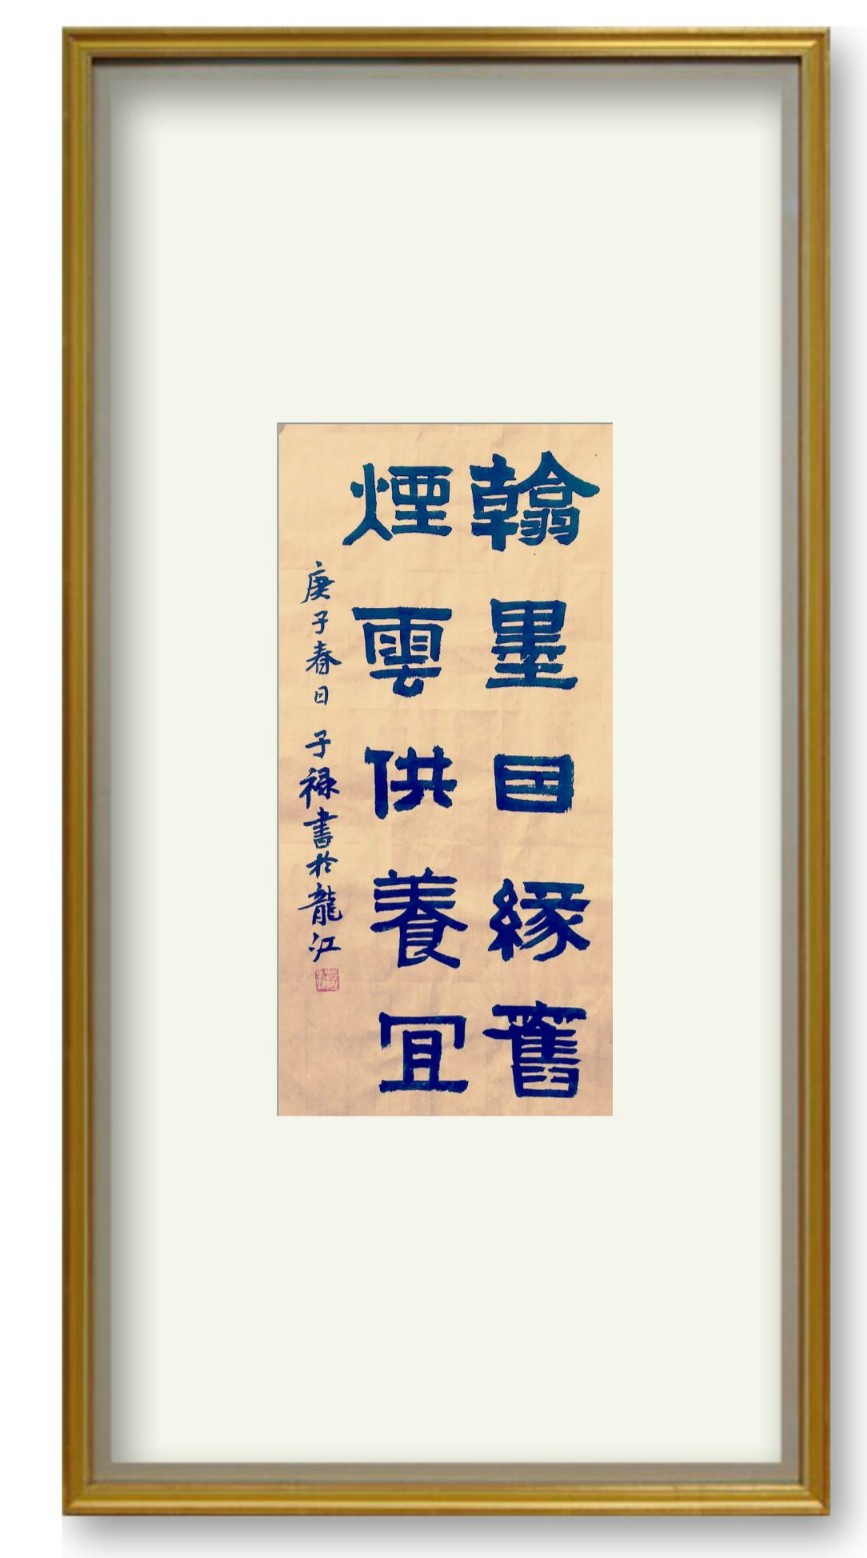 翰墨因緣舊
煙雲供養宜
庚子春日 子禄書於龍江